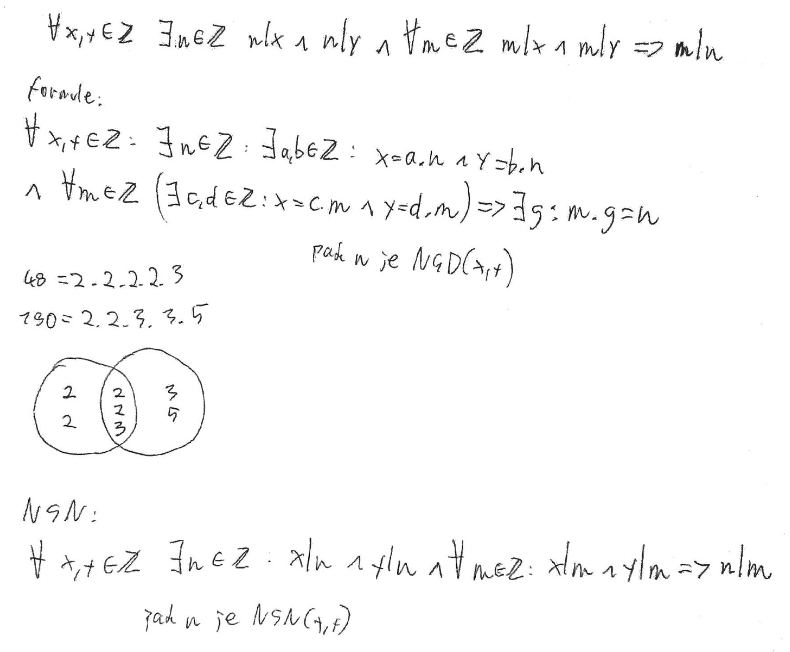 ∀x,y∈Z ∃n∈Z n|x ∧ n|y ∧ ∀m∈Z m|x ∧ m|y => m|n
formule:
∀x,y∈Z: ∃n∈Z: ∃a,b∈Z: x=a.n ∧ y=b.n
∧ ∀m∈Z (∃c,d∈Z: x=c.m ∧ y=d.m) => ∃g: m.g=n
pak n je NSD(x,y)
48 = 2.2.2.2.3
180 = 2.2.3.3.5
2 2 3
2 2 5
3
NSN:
∀x,y∈Z ∃n∈Z: x|n ∧ y|n ∧ ∀m∈Z: x|m ∧ y|m => n|m
pak n je NSN(x,y)